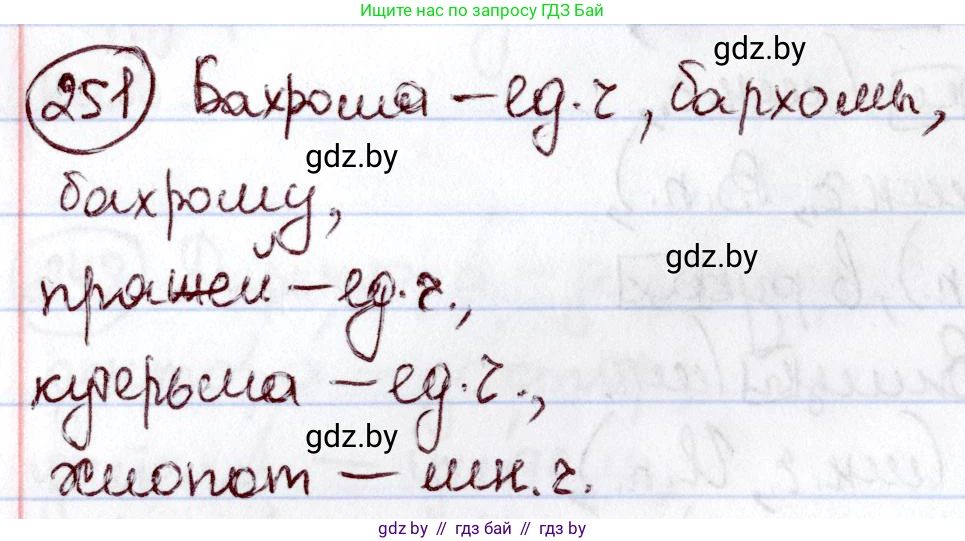 Ищите нас по запросу ГДЗ Бай
gdz.by
251 Бахрома – ед.ч, бархомы,
gdz.by
бахрому,
gdz.by
пряжей – ед.ч.,
кутерьма – ед.ч.,
gdz.by
хлопот – мн.ч.
gdz.by // гдз бай // гдз by